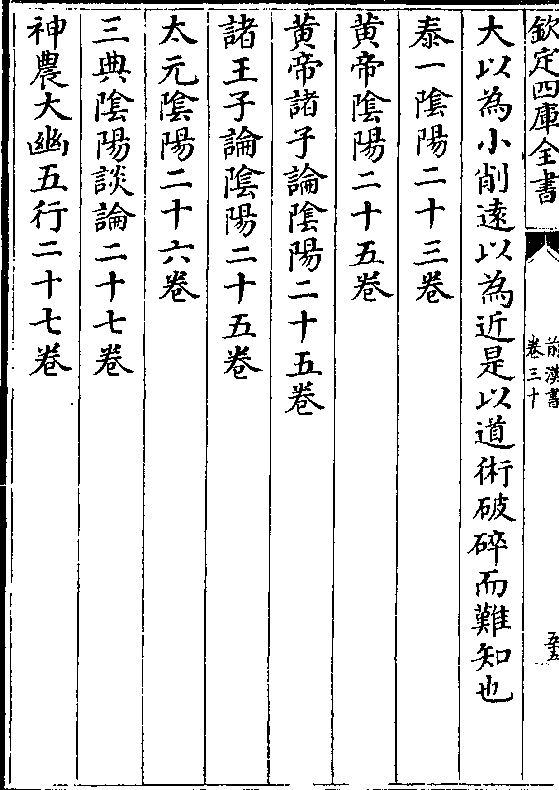 欽定四庫全書
前漢書
卷三十
大以為小削遠以為近是以道術破碎而難知也
泰一陰陽二十三卷
黄帝陰陽二十五卷
黄帝諸子論陰陽二十五卷
諸王子論陰陽二十五卷
太元陰陽二十六卷
三典陰陽談論二十七卷
神農大幽五行二十七卷